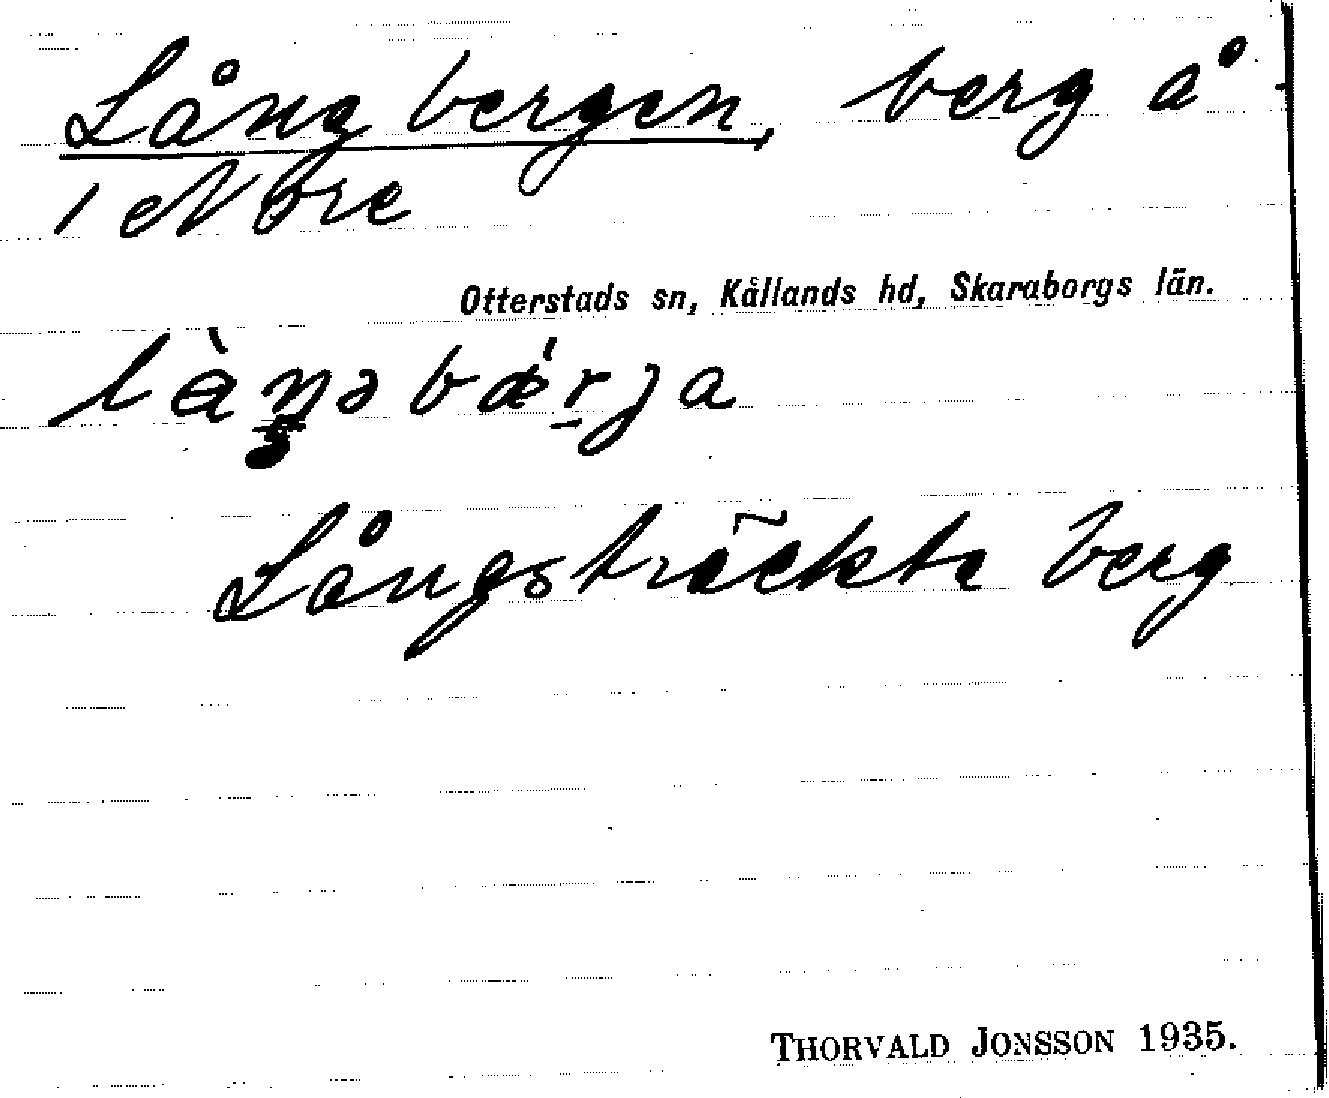 Långbergen, berg å
1 Nore
Otterstads sn, Kållands hd, Skaraborgs län.
Långsträckta berg
THORVALD JONSSON 1935.